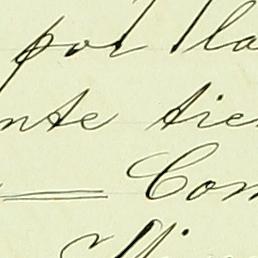 por la
nte tie
Com